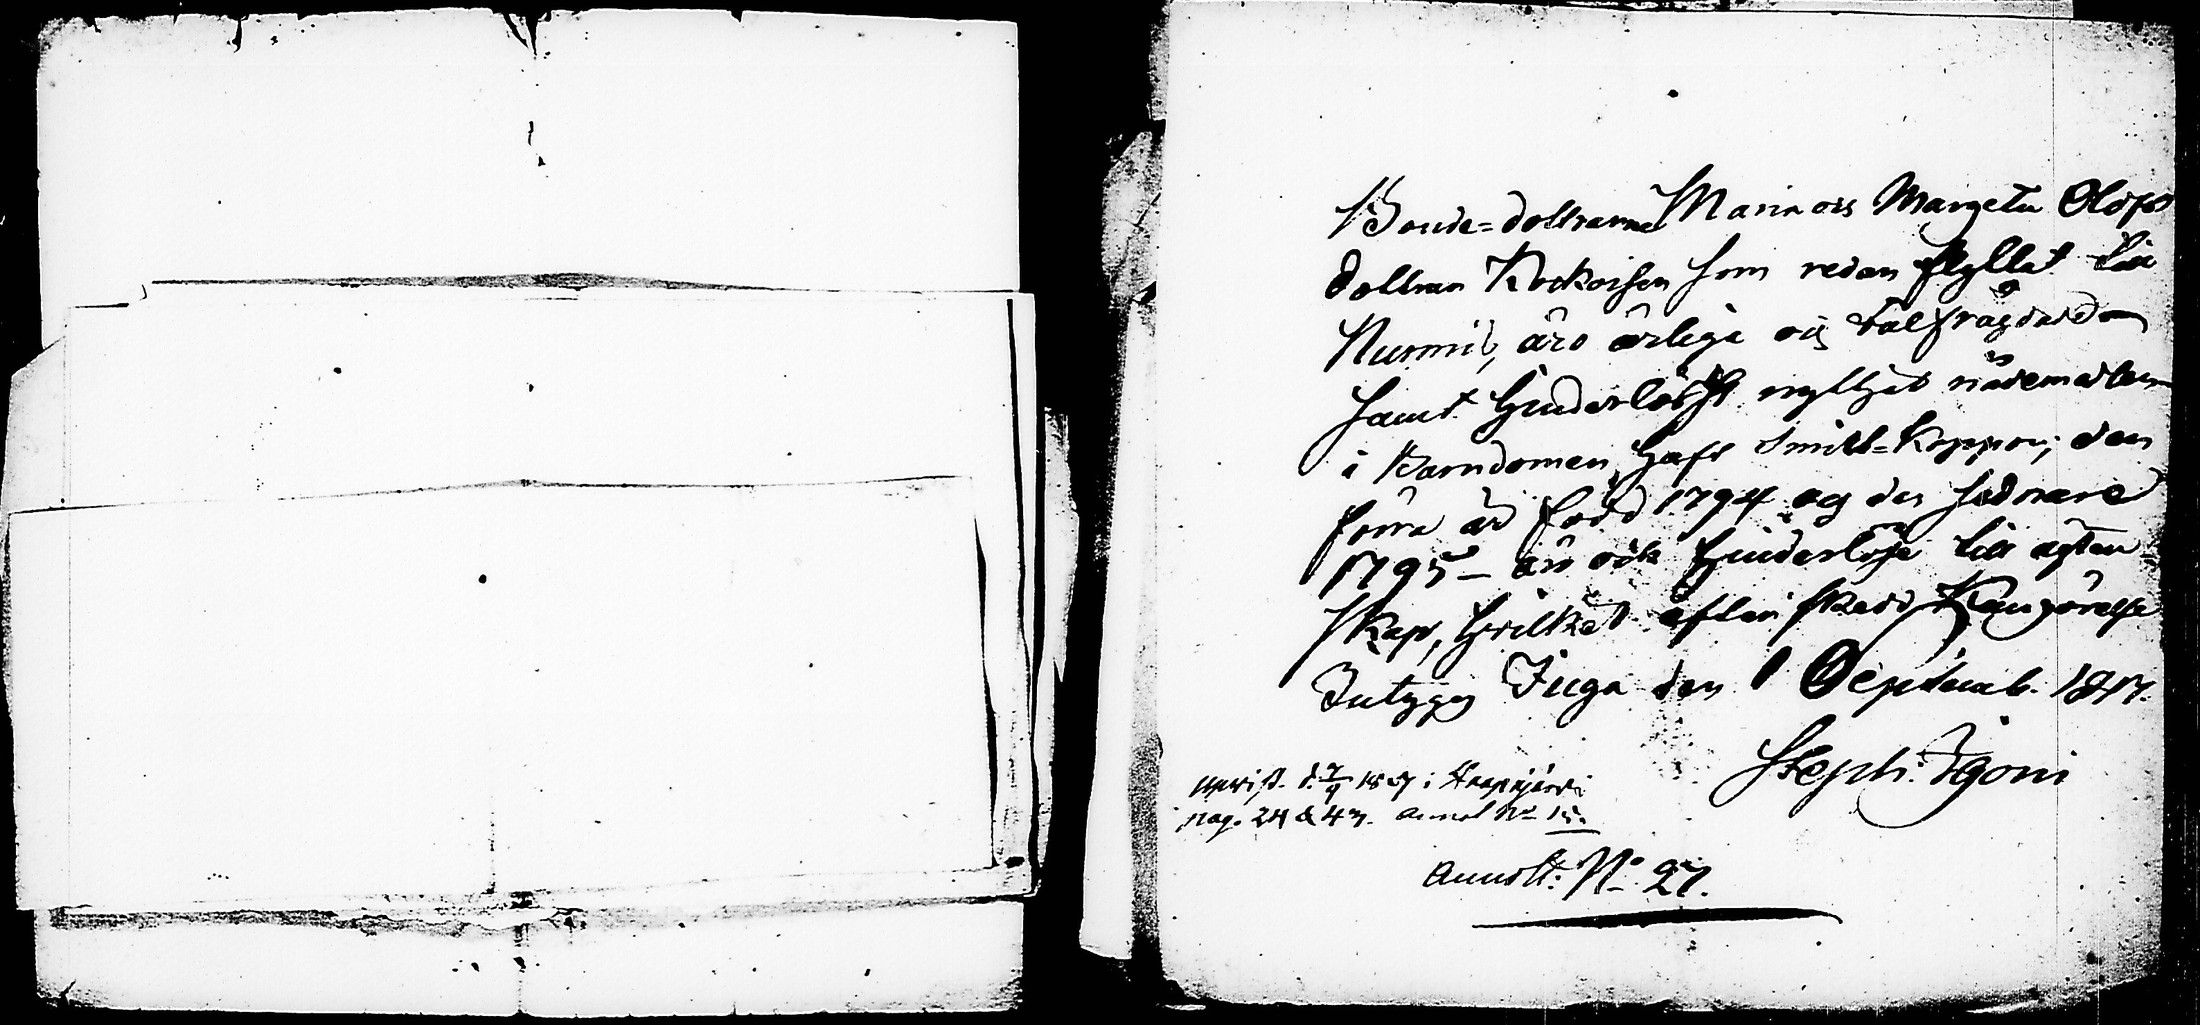 Bonde=dottrarne Maria och Margeta Olofs
dottrar Kockoisen som redan flyttat till
Nurmis, äro ärliga och välfrägdade
samt hinderlöst nyttjat nådemedlen
i Barndomen haft Smitt=koppor; den
förra är född 1794 og den sednare
1795 – äro ock hinderlöse till ägten
skap, hvilket efter skedd Kungörelse
Intygas Juga den 1 Septemb. 1817.
Steph. Igoni
uppvist. d. 7/9 i
pag. 24 & 43. annot No 15.
Annott: No 27.